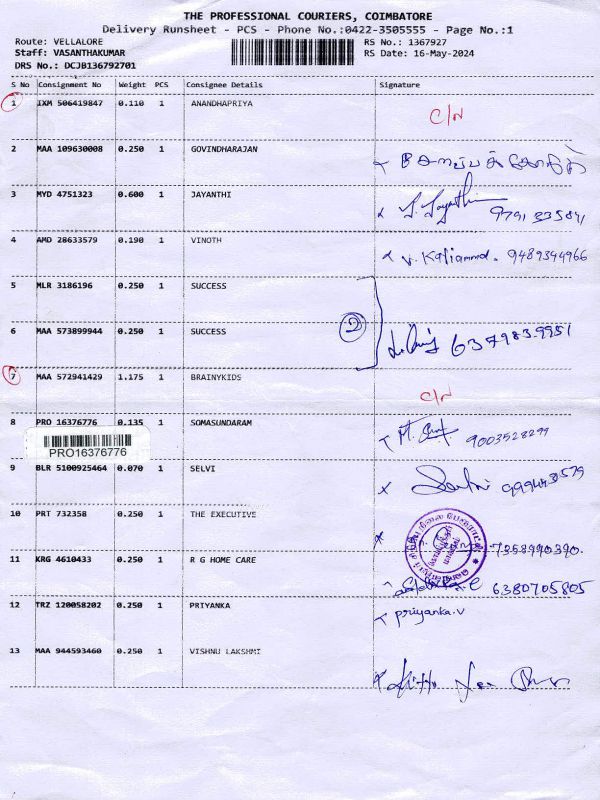 THE PROFESSIONAL COURIERS, COIMBATORE
Delivery Runsheet - PCS - Phone No.:0422-3505555 - Page No.:1
Route: VELLALORE RS No.: 1367927
Staff: VASANTHAKUMAR RS Date: 16-May-2024
DRS No.: DCJB136792701
S No Consignment No Weight PCS Consignee Details Signature
1 IXM 506419847 0.110 1 ANANDHAPRIYA C/N
2 MAA 109630008 0.250 1 GOVINDHARAJAN
3 MYD 4751323 0.600 1 JAYANTHI
4 AMD 28633579 0.190 1 VINOTH V. Kaliammal. 9489344966
5 MLR 3186196 0.250 1 SUCCESS
6 MAA 573899944 0.250 1 SUCCESS 2 637983 9951
7 MAA 572941429 1.175 1 BRAINYKIDS C/N
8 PRO 16376776 0.135 1 SOMASUNDARAM 9003528299
PRO16376776
9 BLR 5100925464 0.070 1 SELVI
10 PRT 732358 0.250 1 THE EXECUTIVE 7358990390.
11 KRG 4610433 0.250 1 R G HOME CARE 6380705805
12 TRZ 120058202 0.250 1 PRIYANKA Priyanka.V
13 MAA 944593460 0.250 1 VISHNU LAKSHMI